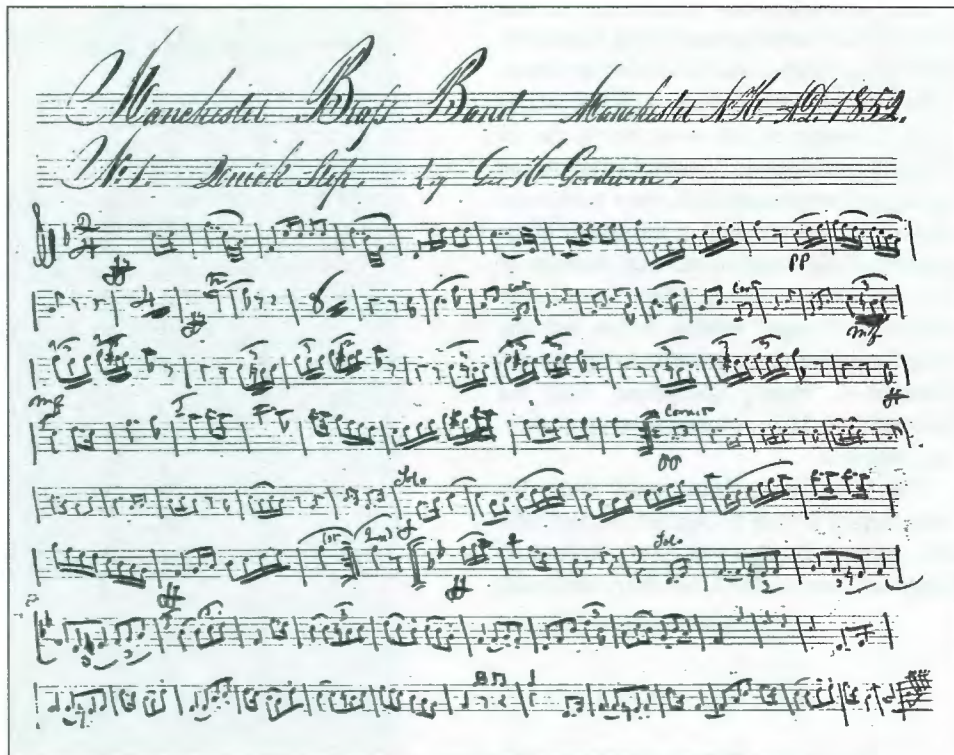 Manchester Brass Band. Manchester N.H. AD. 1852.
No 1. Quick Step. by Geo. H Goodwin.
2
4
ff
pp
ff
tr
Cor
Cor
3
mf
mf
ff
Cornet
pp
Solo
1st
2nd
ff
ff
Solo